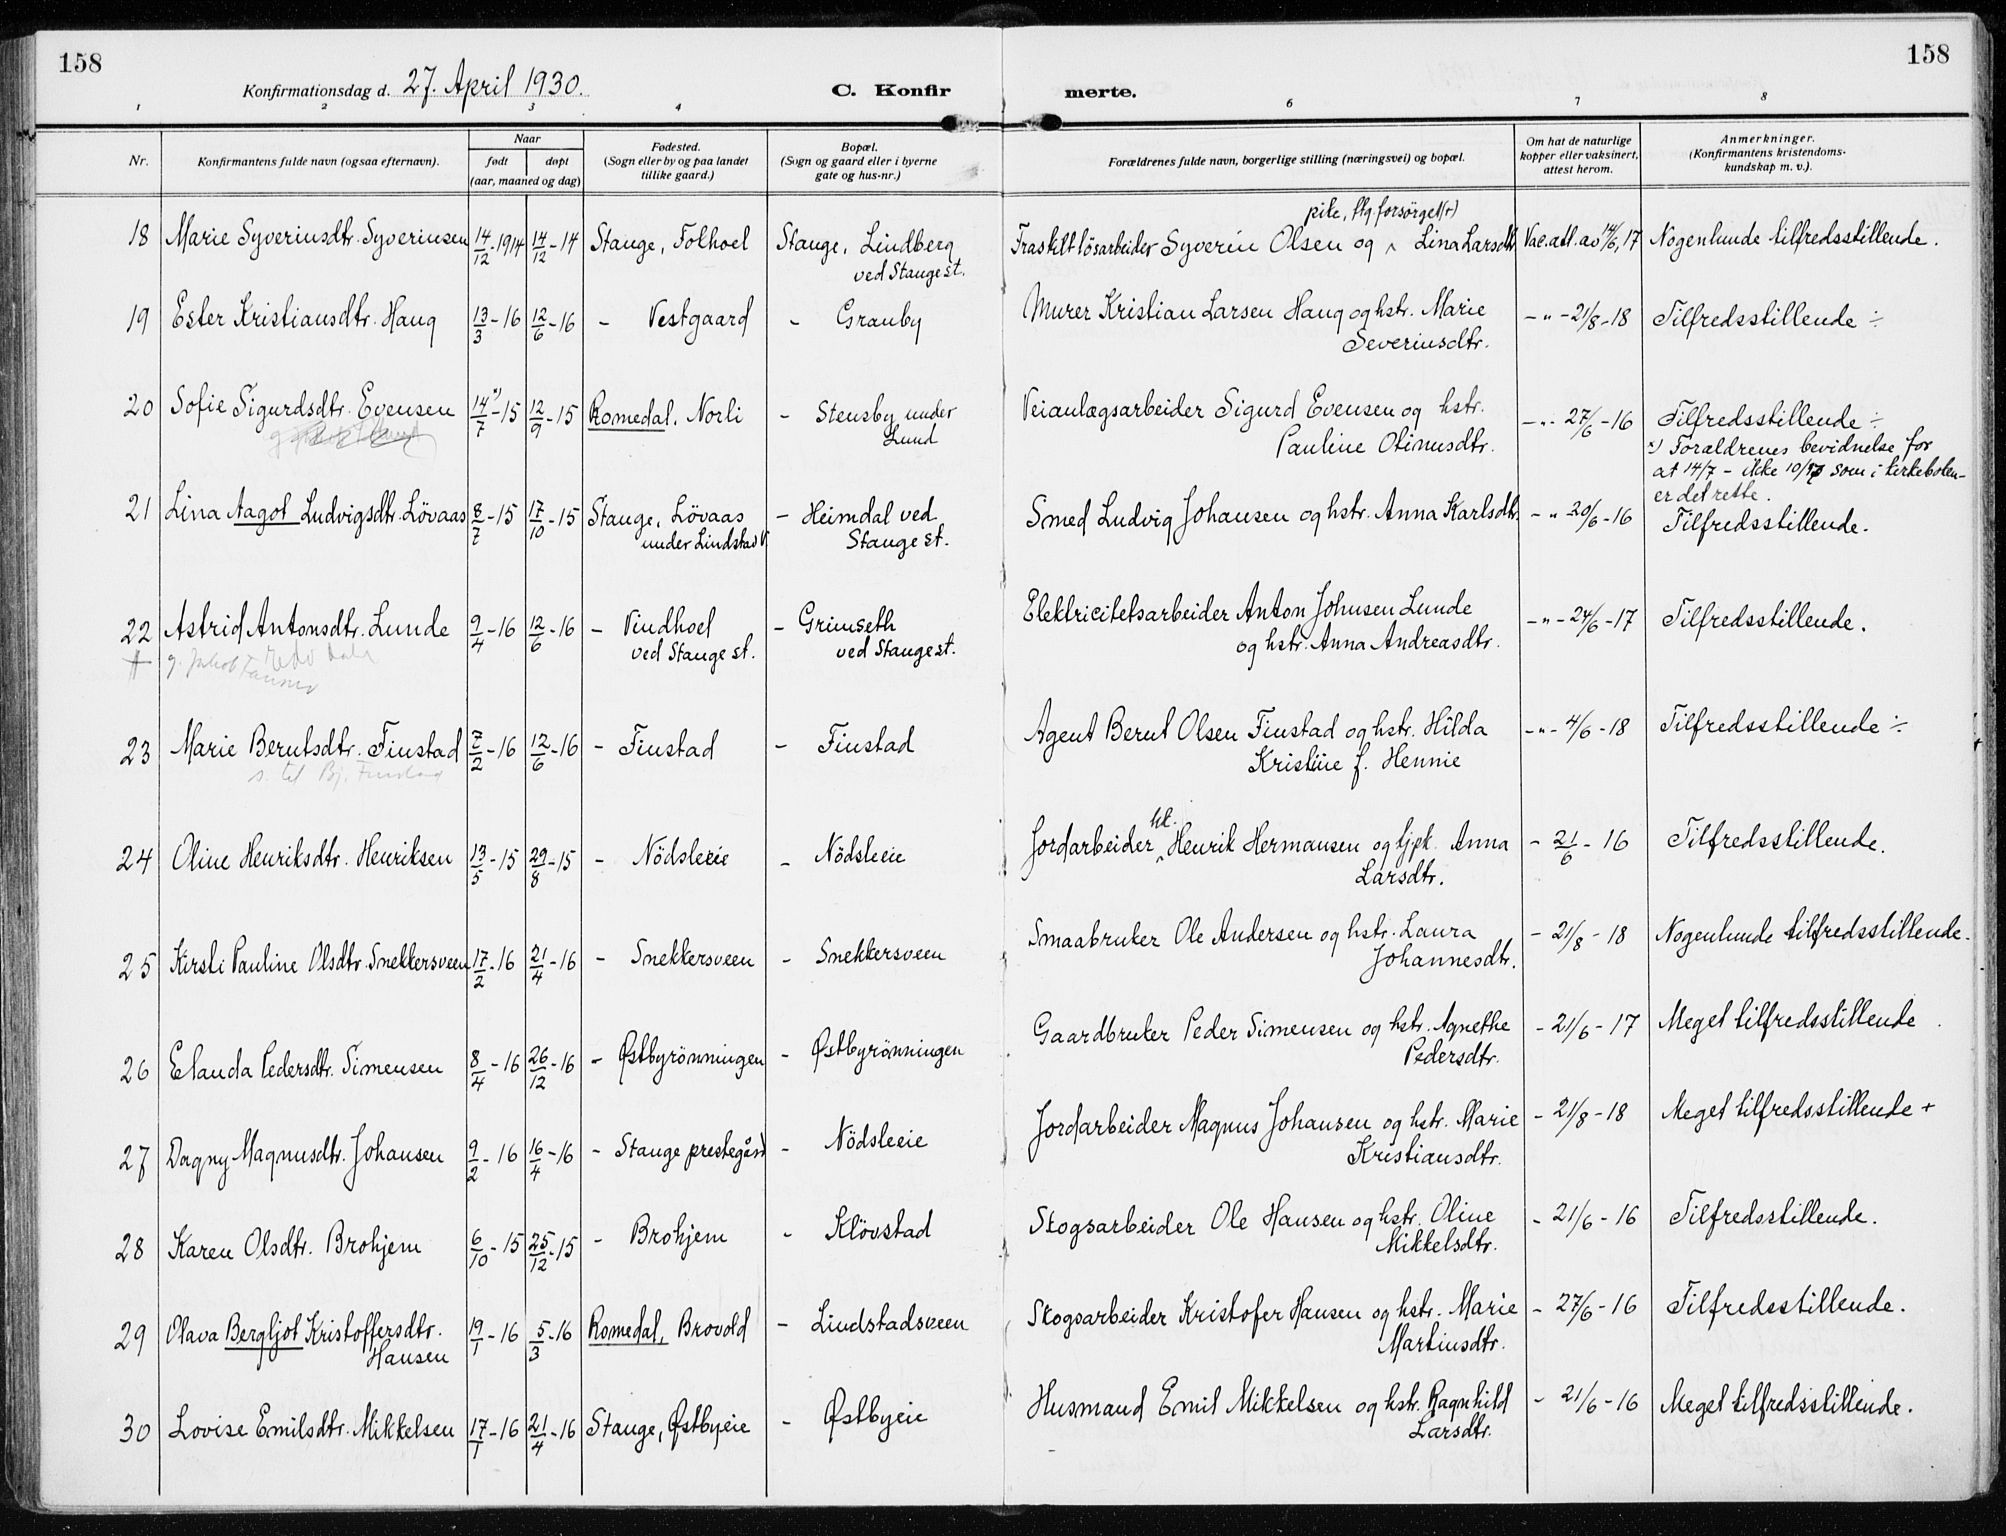 158
158
Konfirmationsdag d. 27. April 1930.
C. Konfir merte.
1 2 3 4 6 7 8
Nr.
Konfirmantens fulde navn (ogsaa efternavn).
Naar
født døpt
(aar, maaned og dag)
Fødested.
(Sogn eller by og paa landet
tillike gaard.)
Bopæl.
(Sogn og gaard eller i byerne
gate og hus-nr.)
Forældrenes fulde navn, borgerlige stilling (næringsvei) og bopæl.
Om hat de naturlige
kopper eller vaksinert,
attest herom.
Anmerkninger.
(Konfirmantens kristendoms-
kundskap m. v.).
pike,
18 Marie Syverinsdtr. Syverinsen 14/12-1914 14/12-14 Stange, Folhoel Stange, Lindberg Fraskilt lösarbeider Syverin Olsen og Lina Larsdtr Vac.att. av 14/6, 17 Nogenlunde tilfredsstillende.
ved Stange st.
19 Ester Kristiansdtr. Haug 13/3-16 12/6-16 - Vestgaard - Granby Murer Kristian Larsen Haug og hstr. Marie - " - 21/8-18 Tilfredsstillende ÷
Severinsdtr.
20 Sofie Sigurdsdtr. Evensen 14/7 x)-15 12/9-15 Romedal. Norli - Stensby under Veianlægsarbeider Sigurd Evensen og hstr. - " - 27/6-16 Tilfredsstillende ÷
Lund Pauline Otinusdtr.
x) Forældrenes bevidnelse for
at 14/7 - ikke 10/7 som i kirkeboken -
er det rette.
21 Lina Aagot Ludvigsdtr. Lövaas 8/7-15 17/10-15 Stange, Lövaas - Heimdal ved Smed Ludvig Johansen og hstr. Anna Karlsdtr. - " 20/6-16 Tilfredsstillende.
under Lindstad V. Stange st.
22 Astrid Antonsdtr. Lunde 9/4-16 12/6-16 - Vindhoel - Grimseth Elektricitetsarbeider Anton Johnsen Lunde - " - 24/6-17 Tilfredsstillende.
ved Stange st. ved Stange st. og hstr. Anna Andreasdtr.
g. Jakob
23 Marie Berntsdtr. Finstad 7/2-16 12/6-16 - Finstad - Finstad Agent Bernt Olsen Finstad og hstr. Hilda - " - 4/6-18 Tilfredsstillende ÷
s. til Bj. Finstad Kristine f. Hennie
24 Oline Henriksdtr. Henriksen 13/5-15 29/8-15 - Nödsleeie - Nödsleeie Jordarbeider Henrik Hermansen og tjpk. Anna - 21/6-16 Tilfredsstillende.
Larsdtr.
25 Kirsti Pauline Olsdtr. Snekkersveen 17/2-16 21/4-16 - Snekkersveen - Snekkersveen Smaabruker Ole Andersen og hstr. Laura - 21/8-18 Nogenlunde tilfredsstillende.
Johannesdtr.
26 Elanda Pedersdtr. Simensen 8/4-16 26/12-16 - Østbyrönningen - Østbyrönningen Gaardbruker Peder Simensen og hstr. Agnethe - 21/6-17 Meget tilfredsstillende
Pedersdtr.
27 Dagny Magnusdtr. Johansen 9/2-16 16/4-16 - Stange prestegård - Nödsleeie Jordarbeider Magnus Johansen og hstr. Marie - 21/8-18 Meget tilfredsstillende +
Kristiansdtr.
28 Karen Olsdtr. Brohjem 6/10-15 25/12-15 - Brohjem - Klövstad Skogsarbeider Ole Hansen og hstr. Oline - 21/6-16 Tilfredsstillende.
Mikkelsdtr.
29 Olava Bergljot Kristoffersdtr. 19/1-16 5/3-16 Romedal, Brovold - Lindstadsveen Skogsarbeider Kristofer Hansen og hstr. Marie - 27/6-16 Tilfredsstillende.
Hansen Martinsdtr.
30 Lovise Emilsdtr. Mikkelsen 17/1-16 21/4-16 Stange, Østbyeie - Østbyeie Husmand Emil Mikkelsen og hstr. Ragnhild - 21/6-16 Meget tilfredsstillende.
Larsdtr.